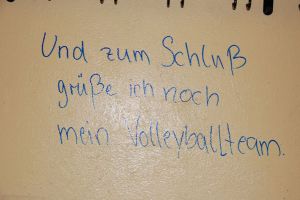 Und zum Schluß
grüße ich noch
mein Volleyballteam.